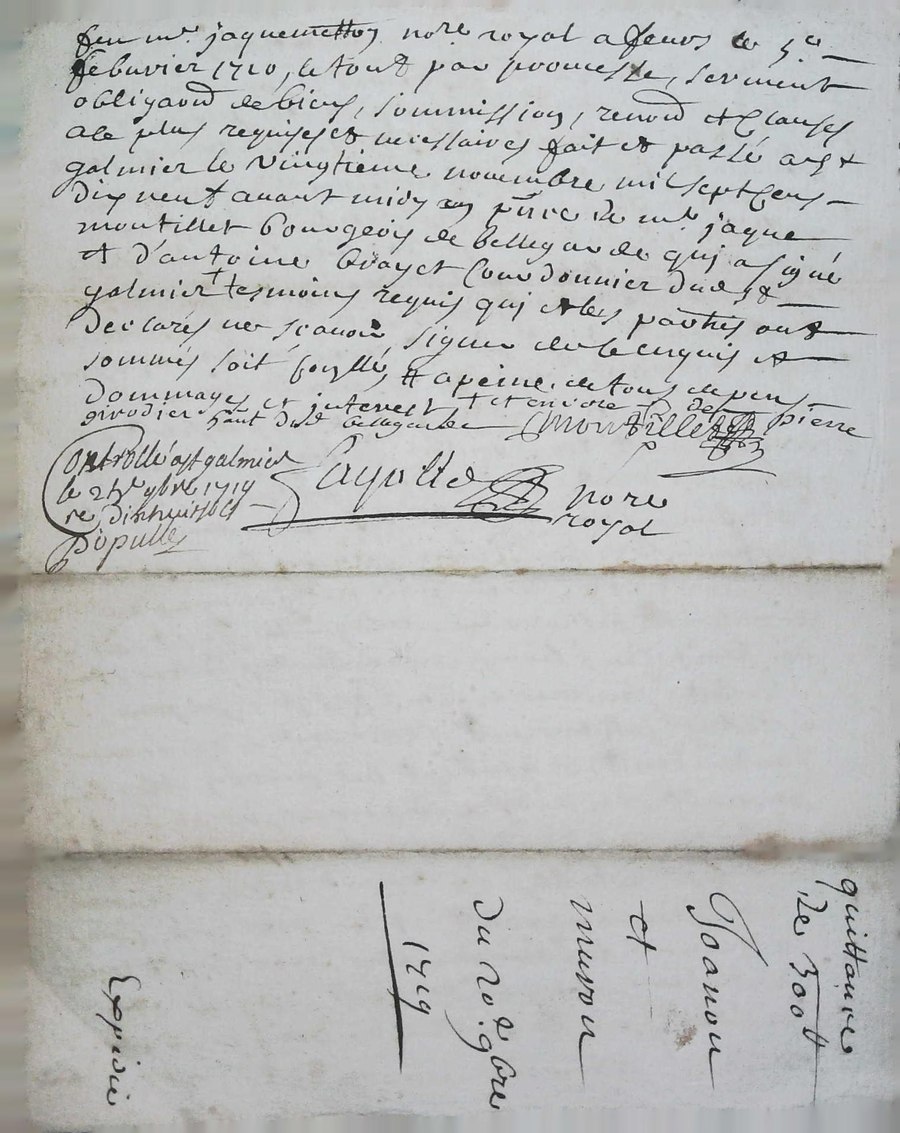 feu mr. jaquemetton nore royal a feurs le 5e
febuvrier 1710, le tout par promesse, serment
obligaon de biens, soummission, renon et clauses
ale plus requises et necessaires fait et passé a st
galmier le vingtieme novembre mil sept cens
dix neuf avant midy en pnce de mr. jaque
montillet bourgeois de bellegarde qui a signé
et d'antoine brayet Courdonnier dud st
galmier tesmoins requis qui et les parties ont
declarés ne scavoir signer de ce enquis et
sommés soit, et a peine de tous depens
dommages et interest + et encore de Pierre
girodier dud bellegarde Montillet
Controllé a st galmier
le 21e 9bre 1719
re. dixhuit sols
nore
royal
quittance
de 300lt
Joanou
et
muron
du 20e. 9bre
1719
Expedié